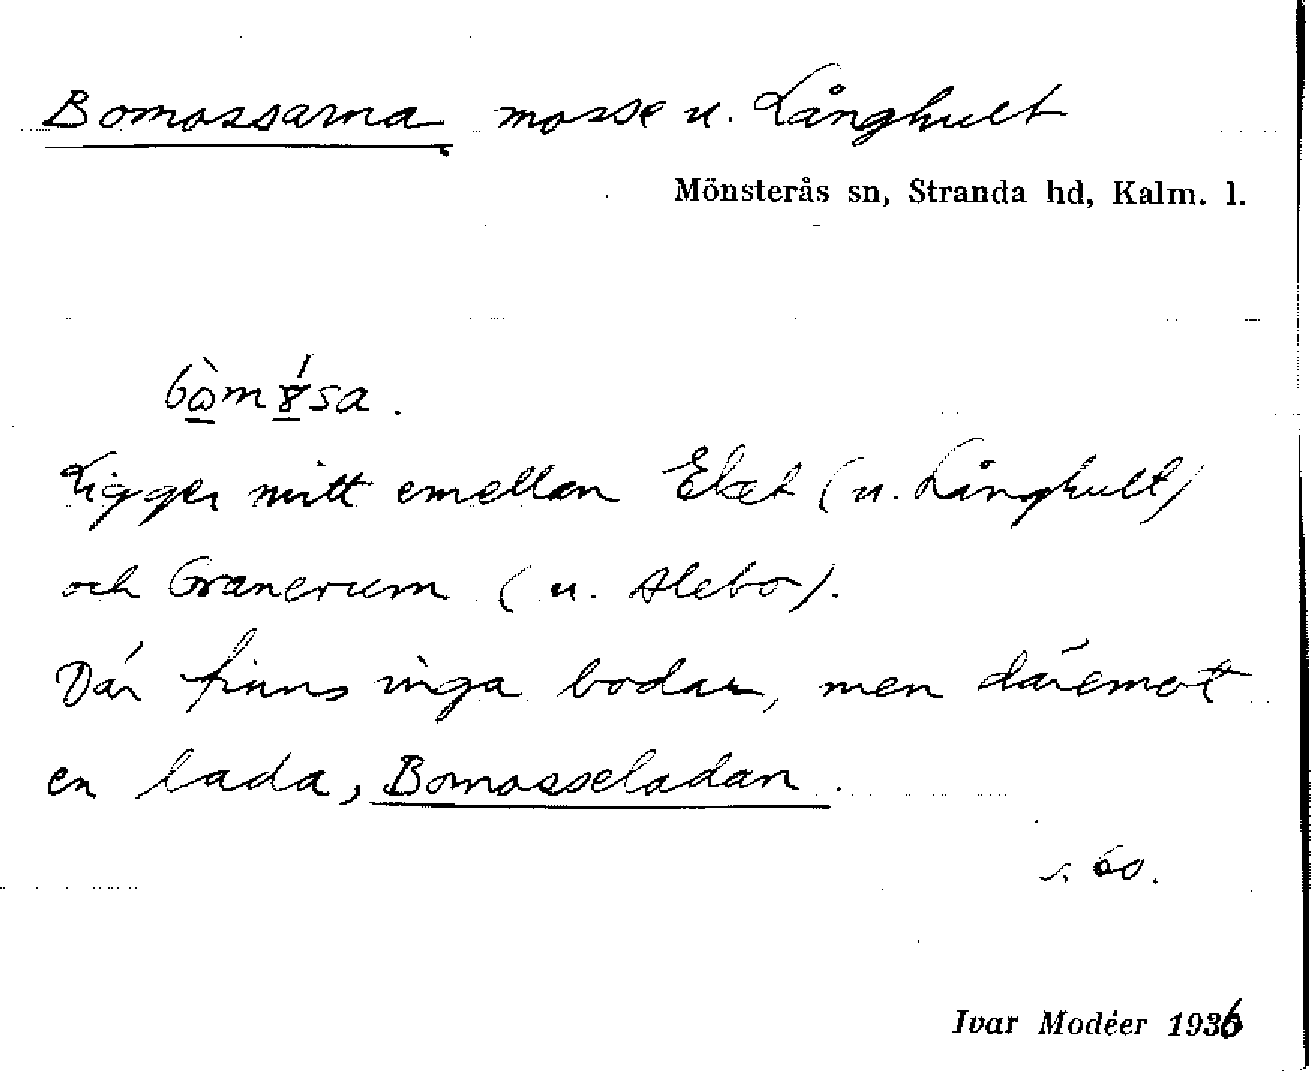 Bomossarna mosse u. Långhult
Mönsterås sn, Stranda hd, Kalm. l.
Ligger mitt emellan Eket (u. Långhult)
och Granerum (u. Alebo).
Där finns inga bodar, men däremot
en lada, Bomosseladan.
s. 60.
Ivar Modéer 1936